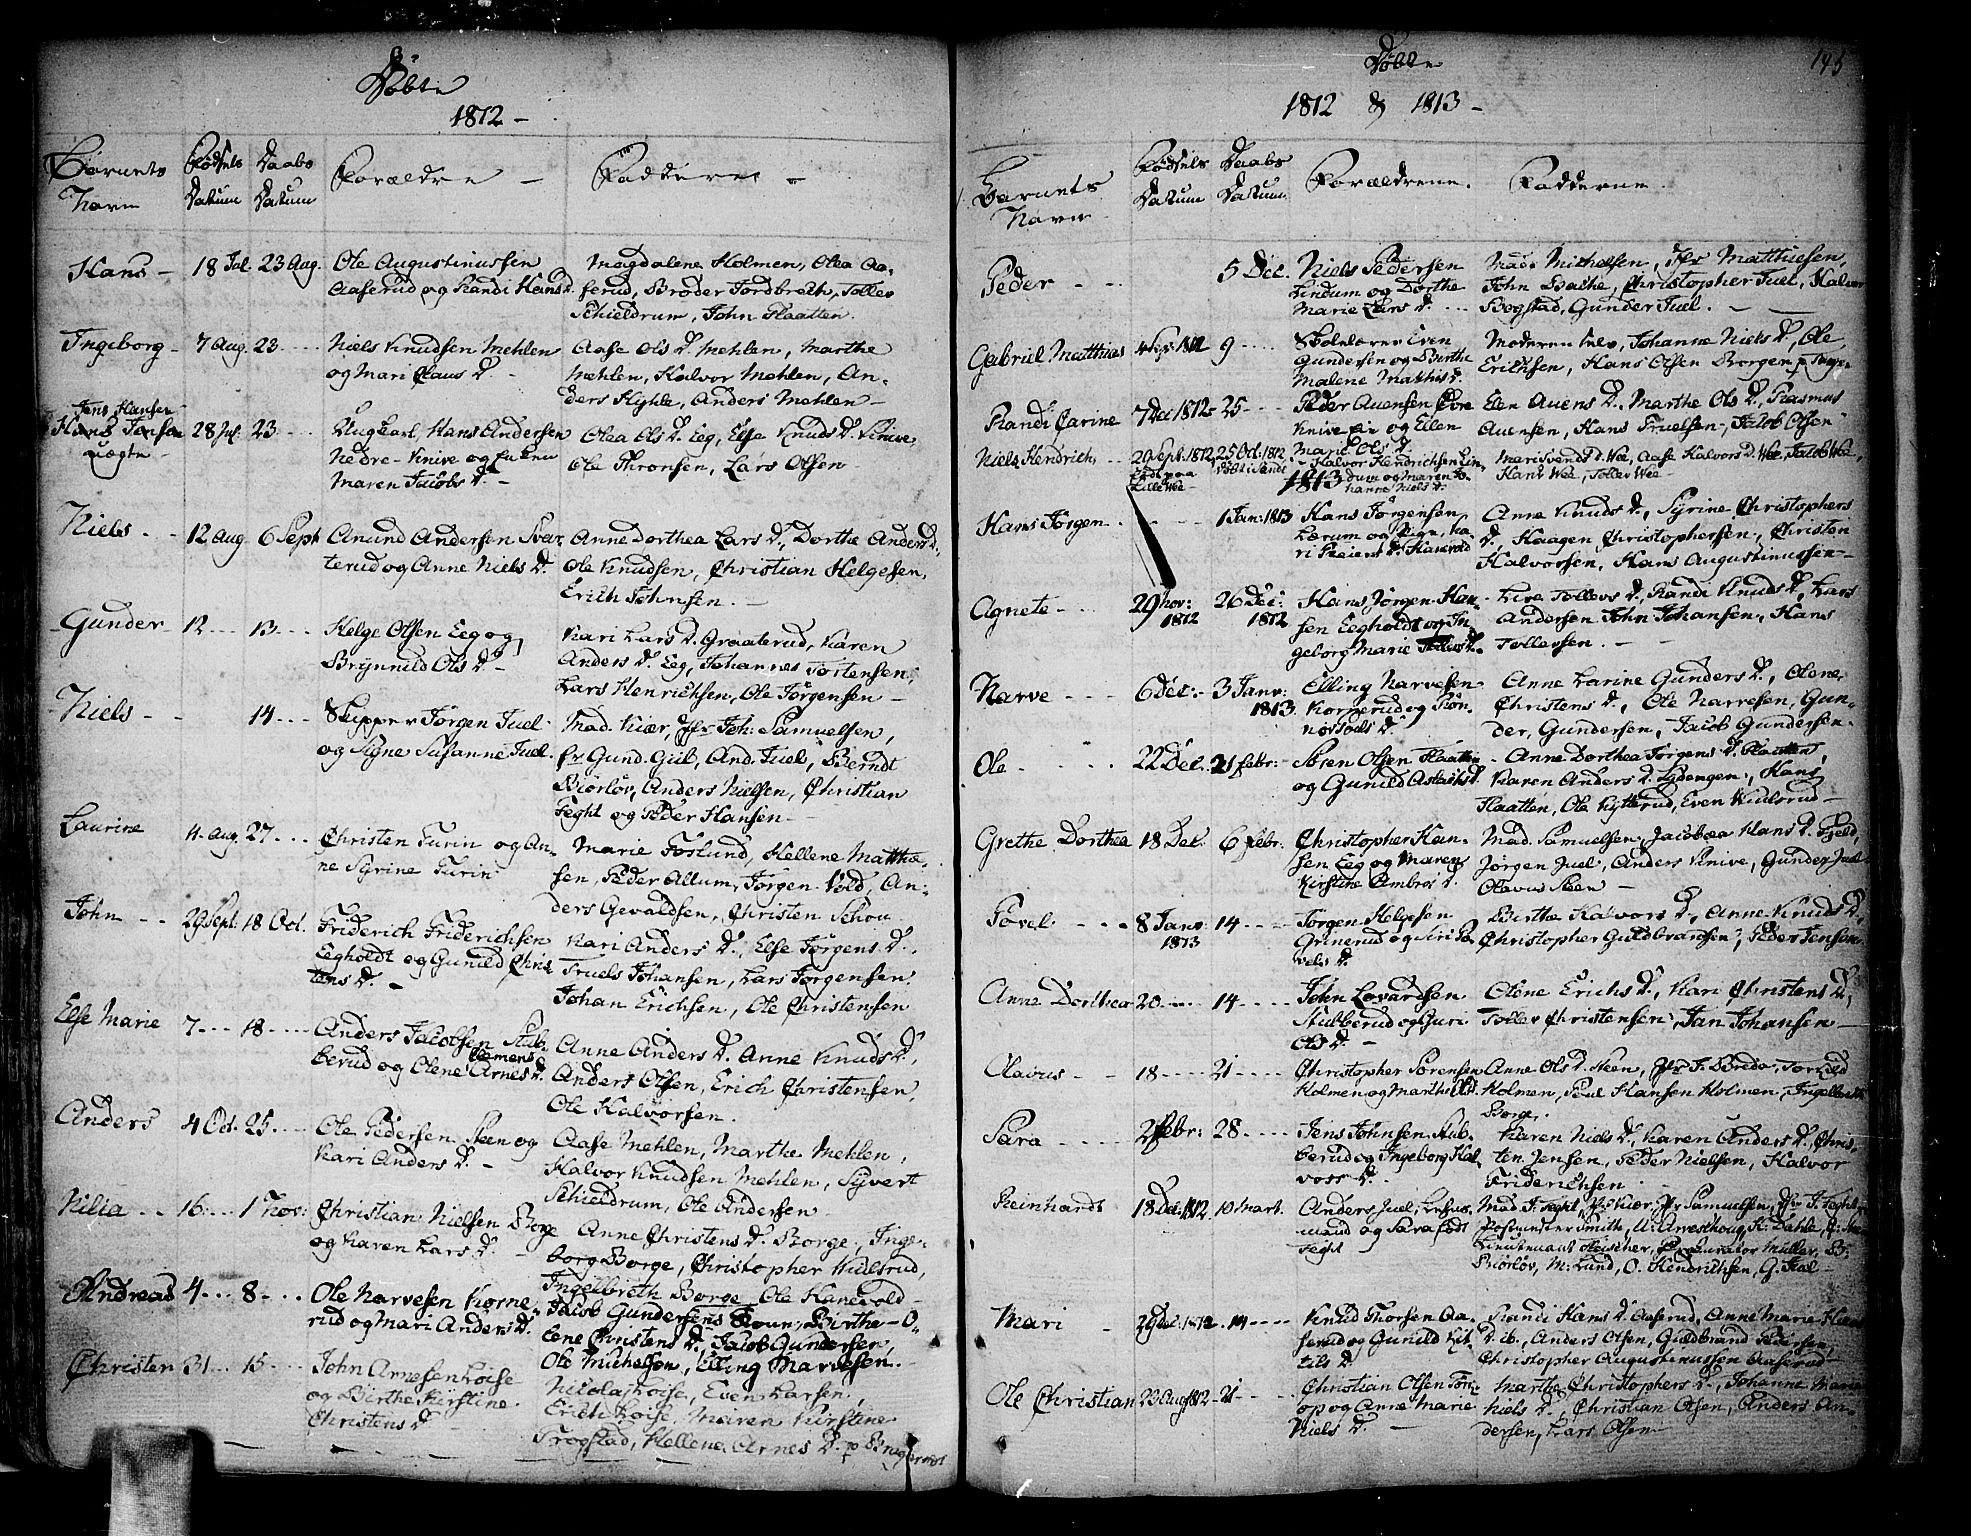 Döbte
1812 -
Barnets Navn
Fødsels Datum
Daabs Datum
Forældre -
Faddere -
Hans - 18 Jul. 23 Aug. Ole Augustinussen Aaserud og Randi Hans D.
Magdalene Holmen, Olea Aa-
serud, Broder Jordbrech, Tollev
Schieldrum, John Flaatten.
Ingeborg - 7 Aug. 23 - - - Niels Knudsen Mehlen
og Mari Claus D. -
Aase Ols D. Mehlen, Marthe
Mehlen, Halvor Mehlen, An-
ders Hyhle, Anders Mehlen -
Jens Hansen
Hans Jensen
uægte - 28 Jul. 23 - - - Ungkarl, Hans Andersen
Nedre Knive og Enken
Maren Jacobs D. -
Olea Ols D. Eeg, Else Knuds D. Knive
Ole Thronsen, Lars Olsen
Niels - - 12 Aug. 6 Sept Amund Andersen Svar-
terud og Anne Niels D.
Anne Dorthea Lars D., Dorthe Anders D.,
Ole Knudsen, Christian Helgesen,
Erich Johnsen. -
Gunder - 12 - - - 13 - - - Helge Olsen Eeg og
Brynnild Ols D. -
Kari Lars D. Graaterud, Karen
Anders D. Eeg, Johannes Tortensen,
Lars Henrichsen, Ole Jørgensen -
Niels - - 14 - - - Skipper Jørgen Juel
og Signe Susanne Juel
Mad. Kiær, Jfr Joh: Samuelsen,
Fr Gund. Gul, And. Juel, Berndt
Biørløv, Anders Nielsen, Christian
Feght og Peder Hansen -
Laurine 4. Aug. 27 - - - Christen Turin og An-
ne Syrine Turin
Marie Foslund, Hellene Matthe-
sen, Peder Allum, Jørgen Vold, An-
ders Gevaldsen, Christen Schou
John - - 29 Sept: 18 Oct. Friderich Friderichsen
Eegholdt og Gunild Chris-
tens D. -
Kari Anders D., Else Jørgens D.
Truels Johansen, Lars Jørgensen
Johan Erichsen, Ole Christensen
Else Marie 7 - - - 18 - - - Anders Jacobsen Stub-
berud og Olene Clemens Arnes D.
Anne Anders D. Anne Knuds D.,
Anders Olsen, Erich Christensen,
Ole Halvorsen.
Anders 4 Oct. 25. - - - Ole Pedersen Steen og
Kari Anders D. -
Aase Mehlen, Marthe Mehlen,
Halvor Knudsen Mehlen, Syvert
Schieldrum, Ole Andersen -
Nilia - - 16 - - - 1 Nov: Christian Nielsen Borge
og Karen Lars D. -
Anne Christens D. Borge, Inge-
borg Borge, Christopher Kulsrud,
Ingelbreth Borge, Ole Hanevold -
Andreas 4 - - - 8 - - - Ole Narvesen Korne-
rud og Mari Anders D.
Jacob Gundersens Koun, Birthe O-
lene Christens D., Jacob Gundersen,
Ole Michelsen, Elling Narvesen.
Christen 31 - - 15 - - - John Arnesen Loise
og Birthe Kirstine
Christens D.
Nicolai Loise, Even Larsen,
Erich Loise, Maren Kirstine
Trogstad, Hellene Arnes D. p Bragernes
145
Döbte
1812 & 1813 -
Barnets Navn
Fødsels Datum
Daabs Datum
Forældrene.
Fadderne.
Peder - - 5 Dec. Niels Pedersen
Lindum og Dorthe
Marie Lars D.
Mads Michelsen, Jfr Matthiesen,
John Bache, Christopher Juel, Halvor
Bogstad, Gunder Juel. -
Gabriel Matthias 4 Sep 1812 9 - - - Skolelærer Even
Gundersen og Birthe
Malene Mathis D.
Moderen selv, Johanne Niels D., Ole
Erichsen, Hans Olsen Borgen
Randi Carine 7 Dec 1812 25 - - - Peder Auensen Øvre
Knive Eie og Ellen
Mari Ols D.
Elen Auens D., Marthe Ols D., Rasmus
Auensen, Hans Truelsen, Jacob Olsen
Niels Hendrich 29 Sept. 1812, 25 Oct. 1812 Halvor Hendrichsen Lin-
dum og Maren Jo-
hanne Niels D.
Mari Svends D. Wee, Aase Halvors D. Wee, Jacob Wee,
Hans Wee, Tollev Wee
1813
Hans Jørgen - - - 1 Jan: 1813 Hans Jørgensen
Lærum og Pige, Ka-
ri Reiers D. Hanevold
Anne Knuds D., Syrine Christophers
D. Haagen Christophersen, Christen
Halvorsen, Hans Augustinussen -
Agnete - - - 29 Nov: 1812 26 Dec: 1812 Hans Jørgen Han-
sen Eegholdt og In-
geborg Marie Tollevs D.
Lise Tollevs D., Randi Knuds D., Lars
Andersen John Johansen, Hans
Tollevsen. -
Narve - - - 6 Dec: - 3 Janv: 1813. Elling Narvesen
Kornerud og Ron-
nov Pouls D.
Anne Larine Gunders D., Olene
Christens D., Ole Narvesen, Gun-
der, Gundersen, Jacob Gundersen.
Ole - - - 22 Dec. 21 Febr: Søren Olsen Flaatten
og Gunild Aslachs D.
Anne Dorthea Jørgens D. Flaatten,
Karen Anders D. Lydengen, Hans
Flaatten, Ole Kytterud, Even Kulsrud -
Grethe Dorthea 18 Dec. 6 Febr: Christopher Han-
sen Eeg og Maren
Kirstine Ambros D.
Mad. Samuelsen, Jacobæa Hans D. Fjeld,
Jørgen Juel, Anders Knive, Gunder Juel
Olavus Steen -
Povel - - - 8 Janv: 1813 14 - - - Jørgen Helgesen
Grinerud og Siri Po-
vels D.
Birthe Halvors D., Anne Knuds D.
Christopher Guldbransen, Peder Jensen
Anne Dorthea 20 - - - 14 - - - John Lovardsen
Stubberud og Guri
Ols D. -
Olene Erichs D., Kari Christens D.,
Tollev Christensen, Jan Johansen -
Olavus - - 18 - - - 21 - - - Christopher Sørensen
Holmen og Marthe Ols D.
Anne Ols D. Steen, Jfr J. Breda, Torkild
Holmen, Poul Hansen Holmen, Ingelbreth
Borge.
Sara - - - 2 Febr: 28 - - - Jens Johnsen Stub-
berud og Ingeborg Hal-
vors D. -
Karen Niels D., Karen Anders D., Chris-
ten Jensen, Peder Nielsen, Halvor
Friderichsen -
Reinhardt 18 Dec. 1812 10 Mart. Anders Juel, Lehns-
mand og Sara født
Feght
Mad J. Feght, Kiær, Jfr Samuelsen, Jfr J. Feght,
Smith, Arvesthoug, H. Dahle,
Lieutenant Fleischer, Procurator Müller, B:
Biørløv, M: Lund, O. Hendrichsen, G. Juel -
Mari - 29 Dec. 1812 - 14 - - - Knud Thorsen Aa-
serud og Gunild Kit-
tils D.
Randi Hans D. Aaserud, Anne Marie
D. ib., Anders Olsen, Guldbrand Pedersen,
Christopher Augustinussen Aaserud -
Ole Christian 23 Aug 1812 - 21 - - Christian Olsen Tor-
op og Anne Marie
Niels D. -
Marthe Christophers D., Johanne Marie
Niels D. Christian Olsen, Anders An-
dersen, Lars Olsen